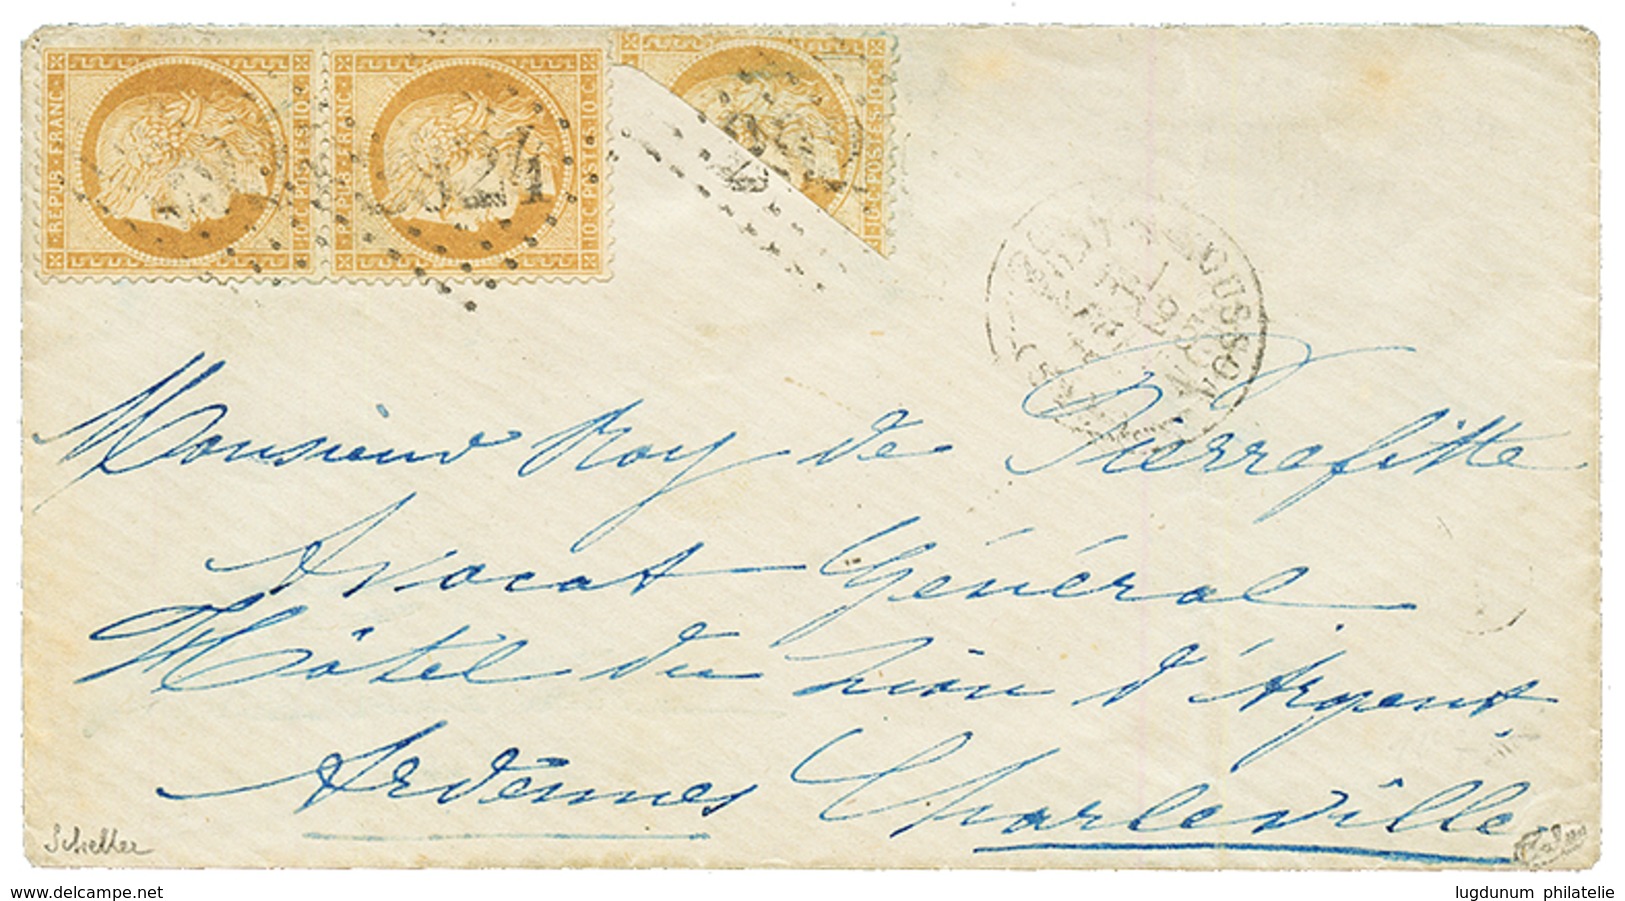 REPUB · FRANC · 10 C. POSTES 10 C.
REPUB · FRANC · 10 C. POSTES 10 C.
10 C. POSTES 10 C.
324
MOUSSON
Monsieur Roy de Pierrefitte
Avocat Général
Hôtel du Lion d'Argent
Ardennes Charleville
Scheller
www.delcampe.net
lugdunum philatelie